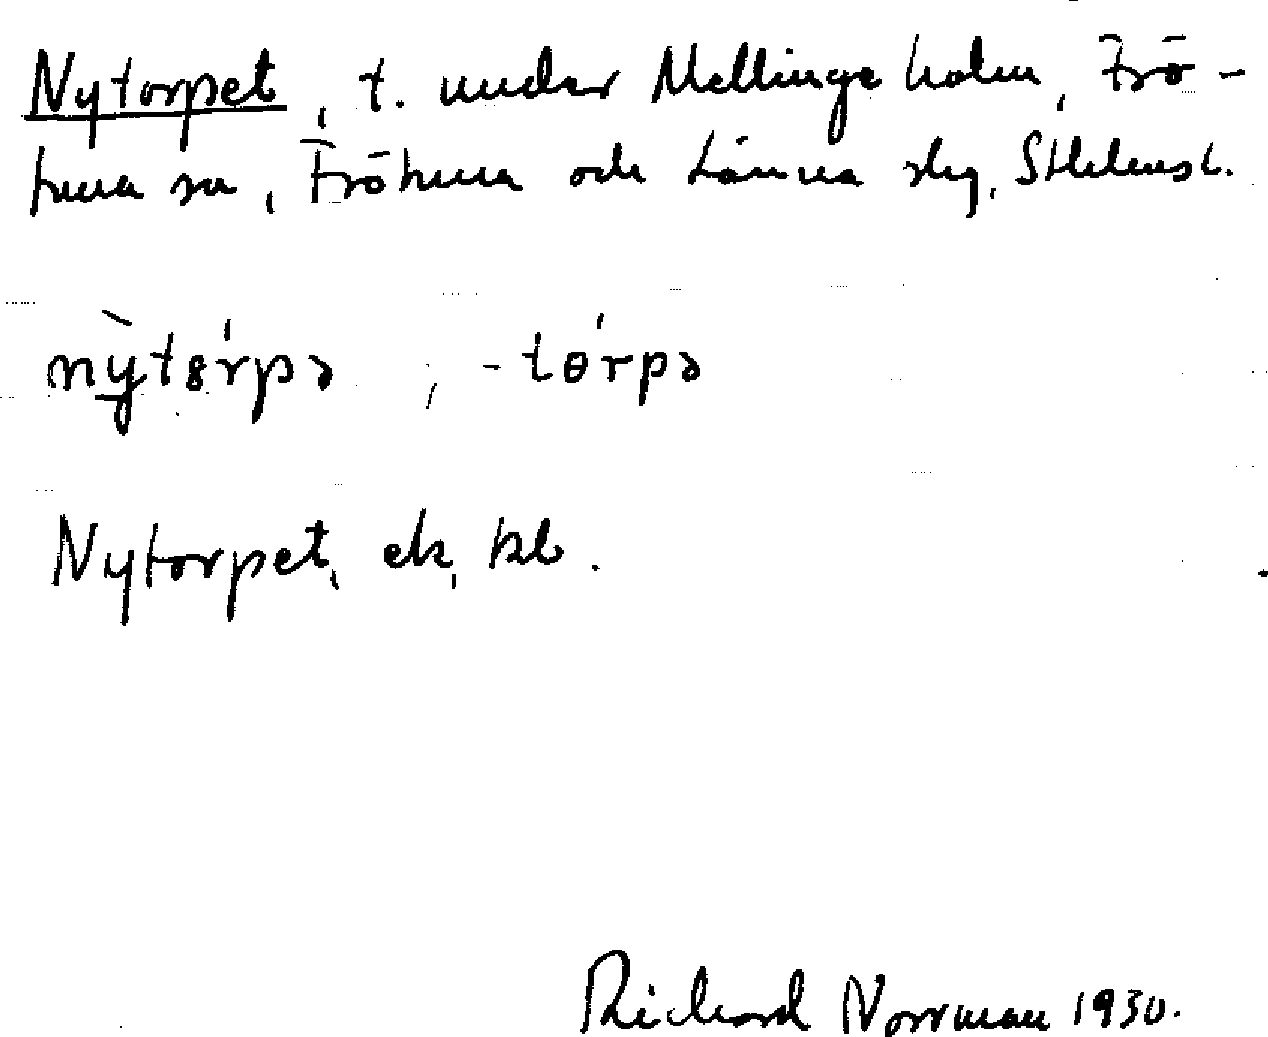 Nytorpet, t. under Mellingeholm, Frö-
tuna sn, Frötuna och Länna slg, Sthlmsl.
nỳtɵ́rpə, -tɵ́rpə
Nytorpet, ek, kb.
Richard Norrman 1930.